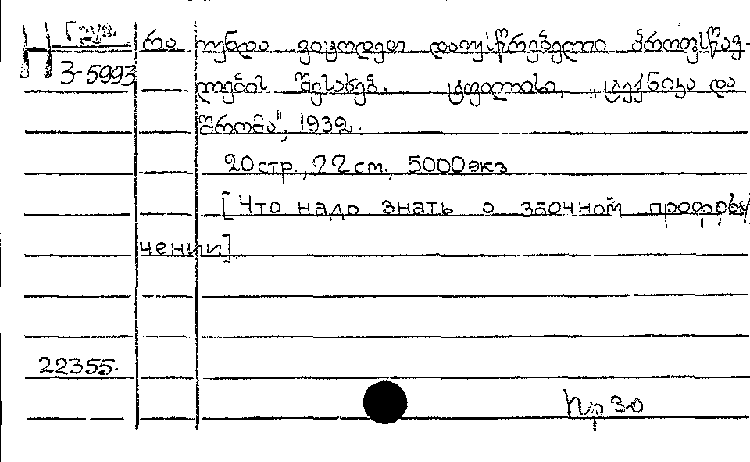 Груз.
Н
3-5993
რა უნდა ვიცოდეთ დაუსწრებელი პროფსწავ-
ლების შესახებ. ტფილისი, „ტექნიკა და
შრომა", 1932.
20 стр., 22 см, 5000 экз
[Что надо знать о заочном профобу
чении]
22355.
Пр 30